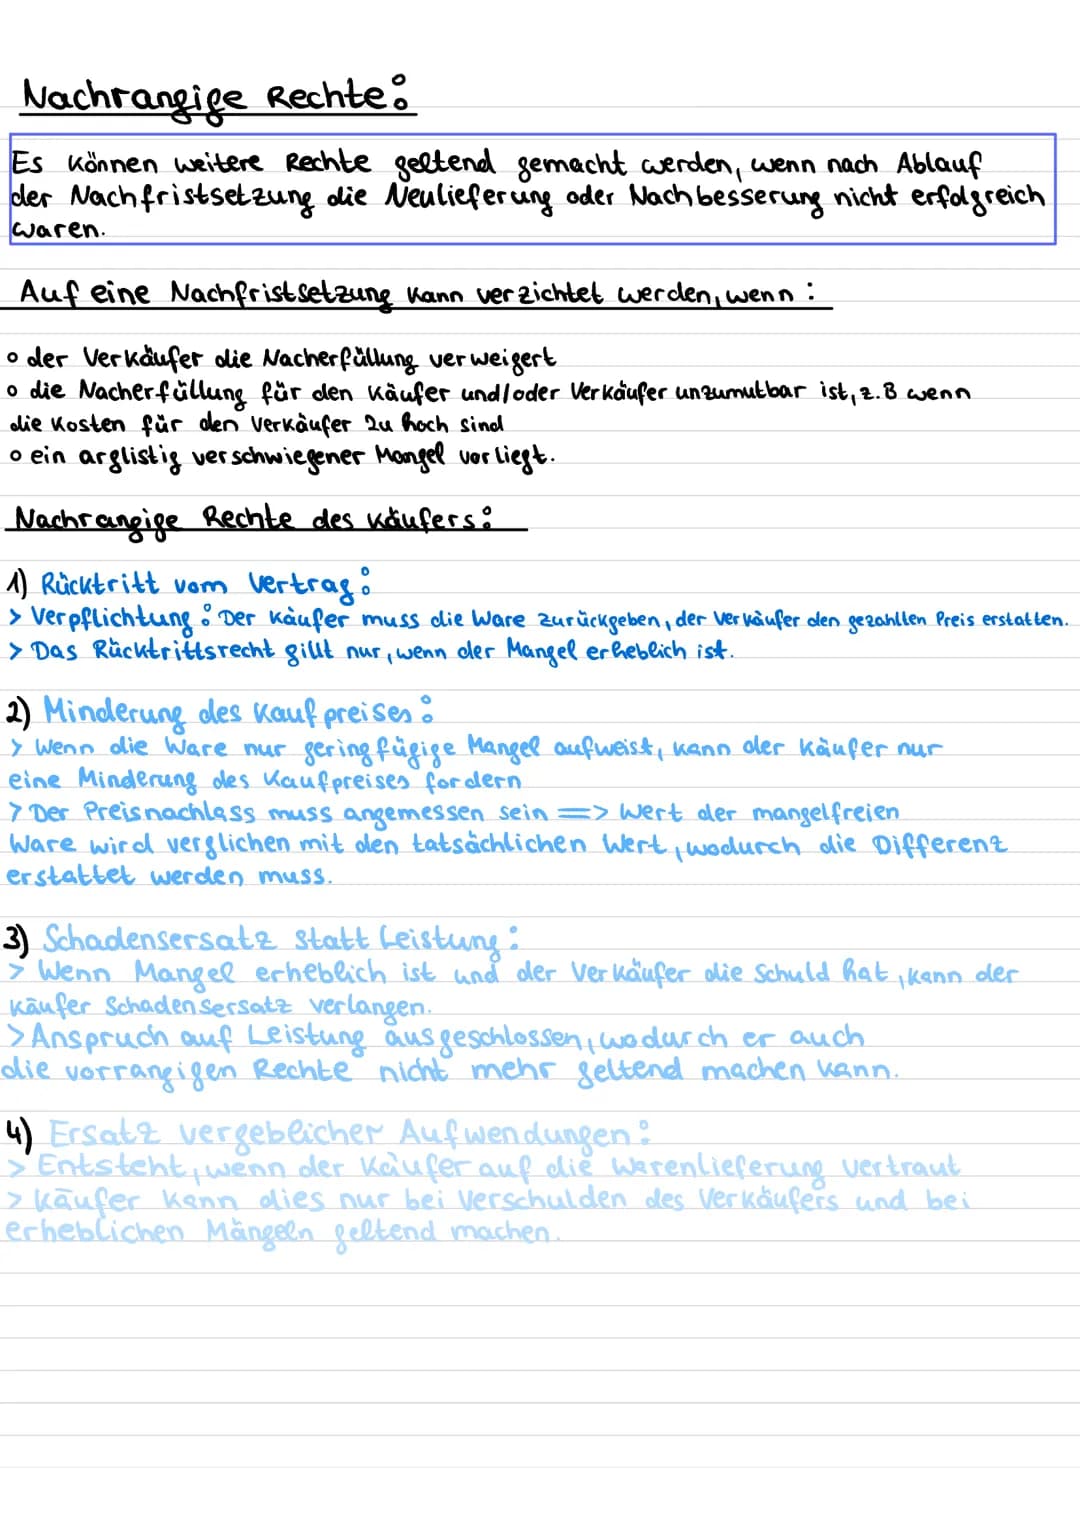 Nachrangige Rechte:
Es können weitere Rechte geltend gemacht werden, wenn nach Ablauf
der Nachfristsetzung die Neulieferung oder Nachbesserung nicht erfolgreich
waren.
Auf eine Nachfristsetzung kann verzichtet werden, wenn :
o der Verkäufer die Nacherfüllung verweigert
o die Nacherfüllung für den Käufer und/oder Verkäufer unzumutbar ist, z.B wenn
die Kosten für den Verkäufer zu hoch sind
o ein arglistig verschwiegener Mangel vorliegt.
Nachrangige Rechte des Käufers:
1) Rücktritt vom Vertrag:
> Verpflichtung: Der Käufer muss die Ware zurückgeben, der Verkäufer den gezahlten Preis erstatten.
> Das Rücktrittsrecht gillt nur, wenn der Mangel erheblich ist.
2) Minderung des Kaufpreises:
> Wenn die Ware nur geringfügige Mangel aufweist, kann der Käufer nur
eine Minderung des Kaufpreises fordern
> Der Preisnachlass muss angemessen sein => Wert der mangelfreien
Ware wird verglichen mit den tatsächlichen Wert, wodurch die Differenz
erstattet werden muss.
3) Schadensersatz statt Leistung:
> Wenn Mangel erheblich ist und der Verkäufer die Schuld hat, kann der
Käufer Schadensersatz verlangen.
> Anspruch auf Leistung ausgeschlossen, wodurch er auch
die vorrangigen Rechte nicht mehr geltend machen kann.
4) Ersatz vergeblicher Aufwendungen:
> Entsteht, wenn der Käufer auf die Warenlieferung vertraut
> Käufer kann dies nur bei Verschulden des Verkäufers und bei
erheblichen Mängeln geltend machen.